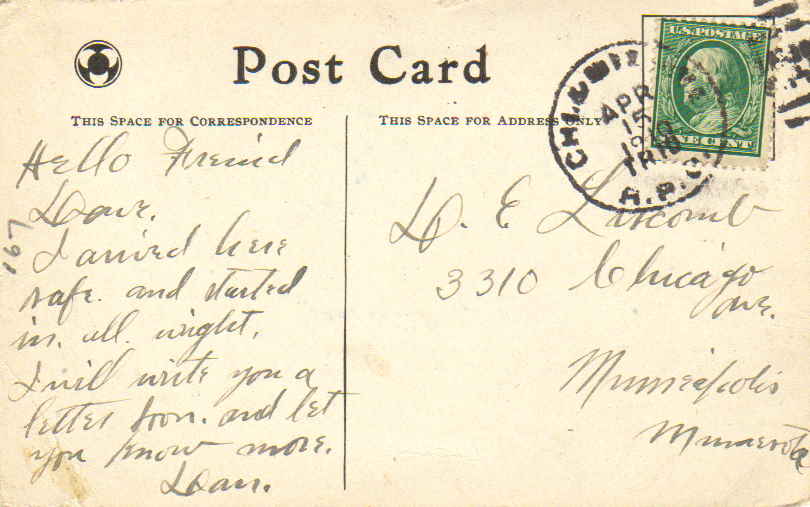 Post Card
THIS SPACE FOR CORRESPONDENCE
THIS SPACE FOR ADDRESS ONLY
U.S. POSTAGE
ONE CENT
APR
15
1910
TR 10
R.P.O.
Hello Freind
Dave.
I arrived here
safe. and started
in. all. wright.
I will write you a
letter soon. and let
you know more.
Dan.
167
D. E. Luscomb
3310 Chicago
ave.
Minneapolis
Minnesota